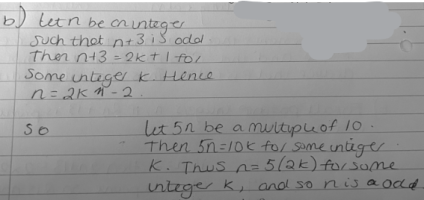 b.) let n be an integer
such that n+3 is odd.
Then n+3 = 2k+1 for
some integer k. Hence
n = 2k - 2.
so let 5n be a multiple of 10.
Then 5n=10k for some integer
k. Thus n= 5(2k) for some
integer k, and so n is a odd.